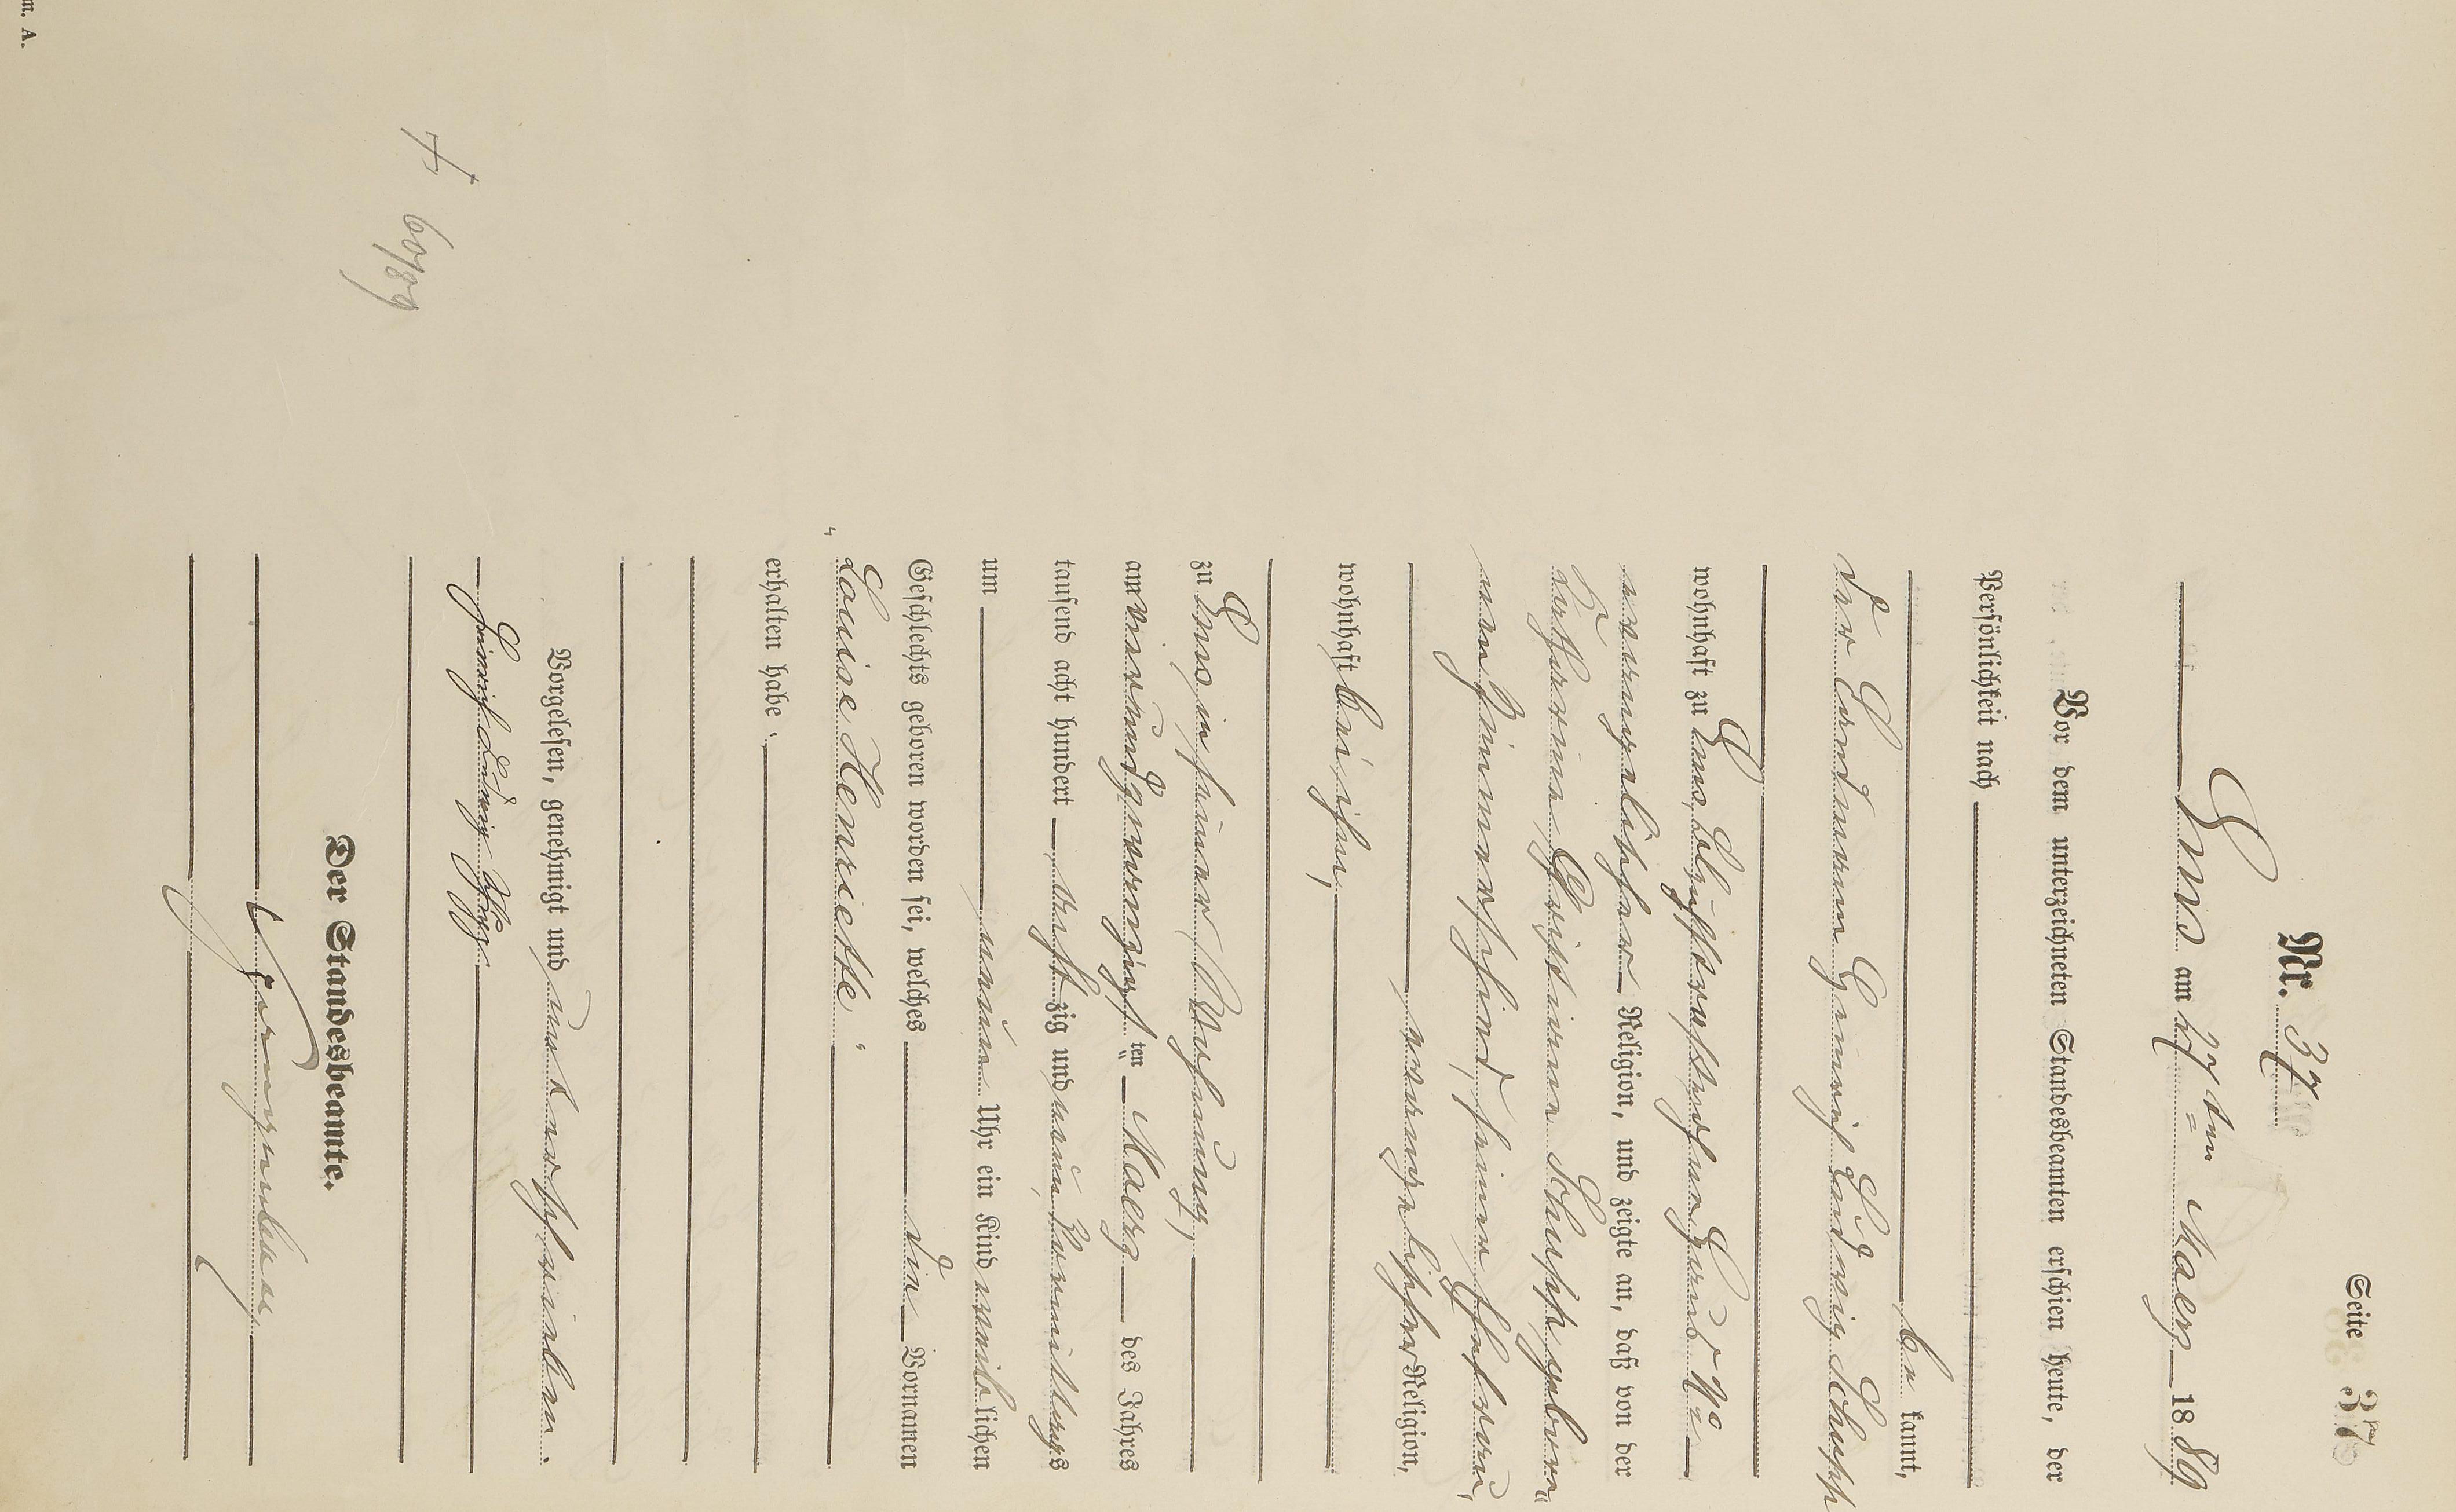 Seite 37
Nr. 37
Ems am 27ten Maerz 1889
Vor dem unterzeichneten Standesbeamten erschien heute, der
Persönlichkeit nach
be kannt,
der Landmann Heinrich Ludwig Schupp
wohnhaft zu Ems,
evangelischer Religion, und zeigte an, daß von der
Katharine Christiane Schupp geborene
seiner Ehefrau,
evangelischer Religion,
wohnhaft bei ihm,
zu Ems in seiner Wohnung,
am vierundzwanzigsten ten Maerz des Jahres
tausend acht hundert acht zig und neun, Vormittags
um neun Uhr ein Kind weiblichen
Geschlechts geboren worden sei, welches die Vornamen
"Louise Henriette"
erhalten habe.
Vorgelesen, genehmigt und unterschrieben.
Heinrich Ludwig
Der Standesbeamte.
† 60/89
m. A.